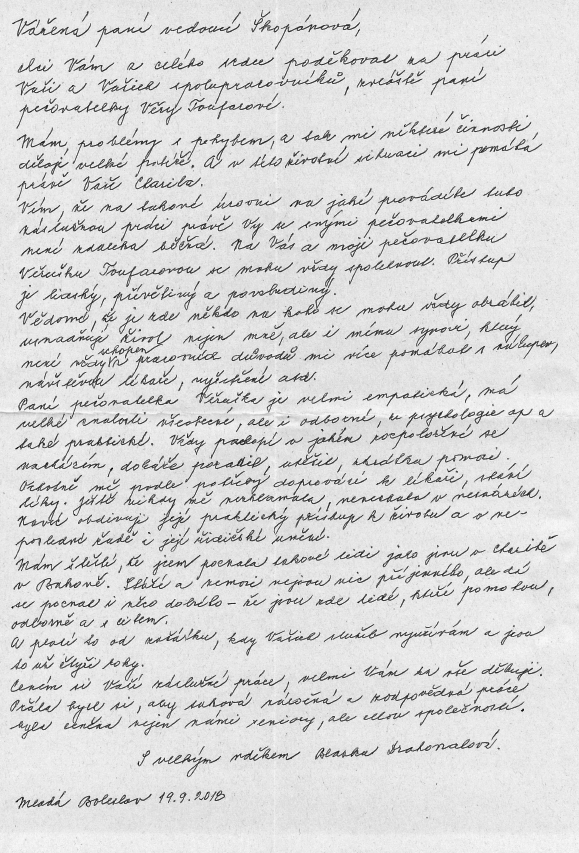 Vážená paní vedoucí Škopánová,
chci Vám z celého srdce poděkovat za práci
Vaši a Vašich spolupracovníků, zvláště paní
pečovatelky Věry Toufarové.
Mám problémy s pohybem, a tak mi některé činnosti
dělají velké potíže. A v této životní situaci mi pomáhá
právě Vaše Charita.
Vím, že na takové úrovni na jaké provádíte tuto
záslužnou práci právě Vy se svými pečovatelkami
není zdaleka běžná. Na Vás a moji pečovatelku
Věrušku Toufarovou se mohu vždy spolehnout. Přístup
je lidský, přívětivý a povzbudivý.
Vědomí, že je zde někdo na koho se mohu vždy obrátit,
usnadňuje život nejen mně, ale i mému synovi, který
není vždy z pracovních důvodů schopen mi více pomáhat s nákupem,
návštěvou lékaře, vyřešení atd.
Paní pečovatelka Věruška je velmi empatická, má
velké znalosti všeobecné, ale i odborné, z psychologie ap a
také praktické. Vždy pochopí v jakém rozpoložení se
nacházím, dokáže poradit, utěšit, zkrátka pomoci.
Ochotně mě podle potřeby doprovází k lékaři, shání
léky. Ještě nikdy mě nezklamala, nenechala v nesnázích.
Navíc obdivuji její praktický přístup k životu a v ne-
poslední řadě i její řidičské umění.
Mám štěstí, že jsem poznala takové lidi jako jsou v Charitě
v Bakově. Stáří a nemoci nejsou nic příjemného, ale dá
se poznat i něco dobrého – že jsou zde lidé, kteří pomohou,
odborně a s citem.
A platí to od začátku, kdy Vašich služeb využívám a jsou
to už čtyři roky.
Cením si Vaší záslužné práce, velmi Vám za vše děkuji.
Přála bych si, aby taková náročná a zodpovědná práce
byla ceněna nejen námi seniory, ale celou společností.
S velkým vděkem Blanka Drahonalová.
Mladá Boleslav 19.9.2018